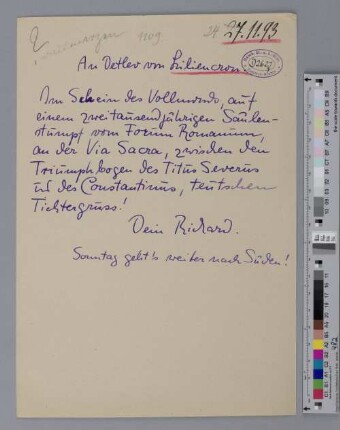 27.11.93
An Detlev von Liliencron
Im Schein des Vollmonds, auf
einem zweitausendjährigen Säulen-
stumpf vom Forum Romanum,
an der Via Sacra, zwischen den
Triumphbogen des Titus Severus
und des Constantinus, teutschen
Tichtergruss!
Dein Richard.
Sonntag geht's weiter nach Süden!